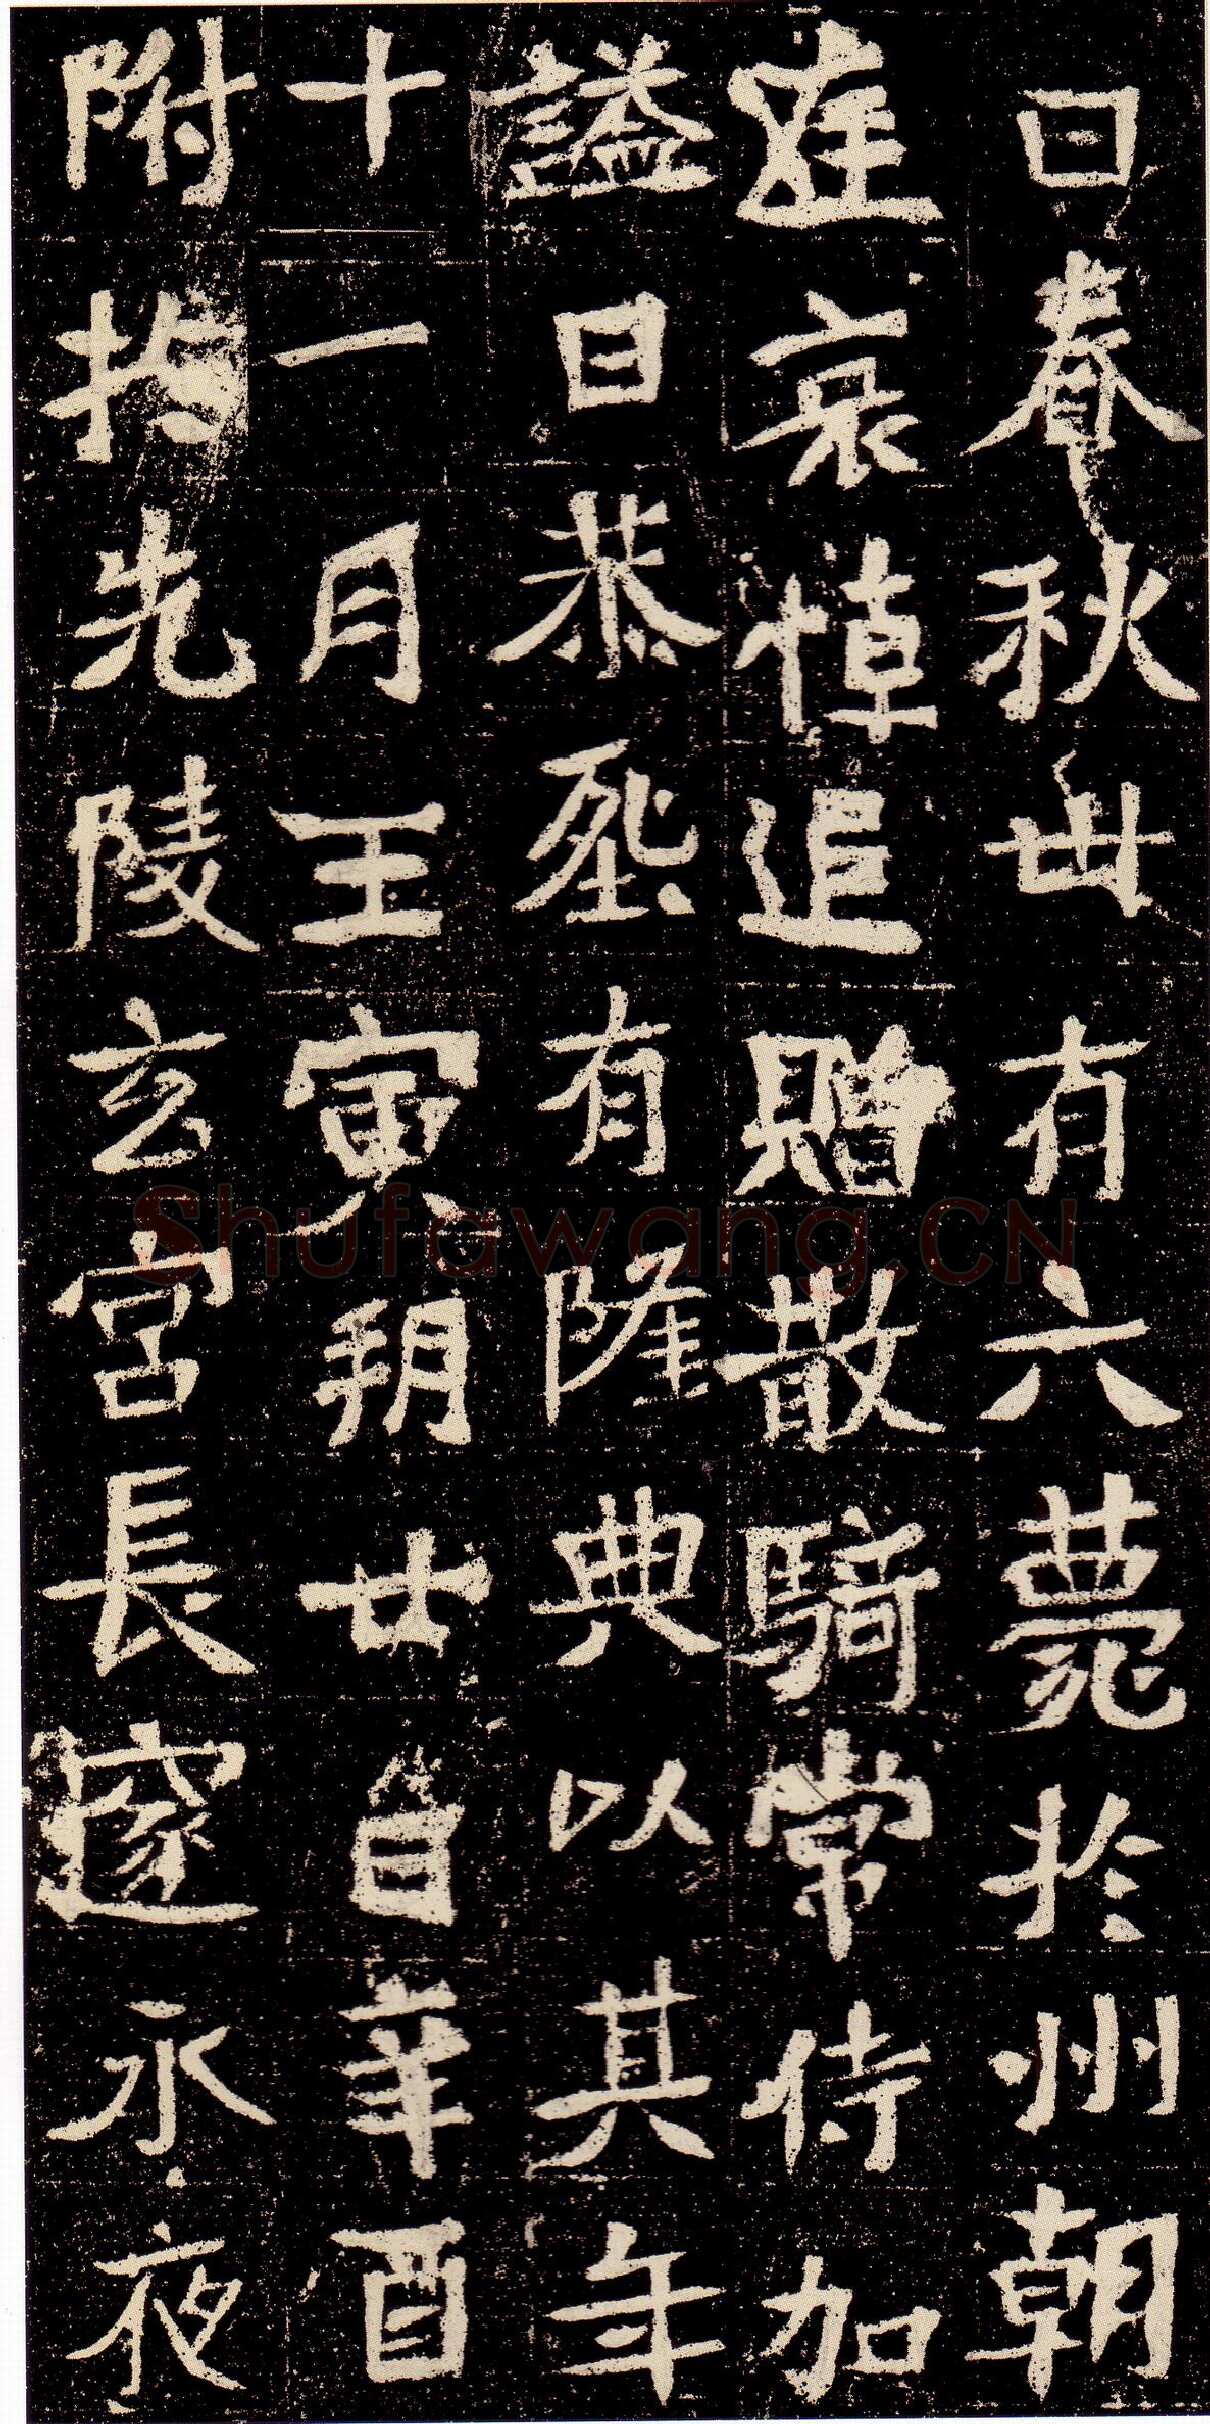 日春秋卌有六薨於州朝
廷哀悼追贈散騎常侍加
謚曰恭熙有隆典以其年
十一月壬寅朔廿日辛酉
附於先陵玄宮長邃永夜
Shufawang.CN